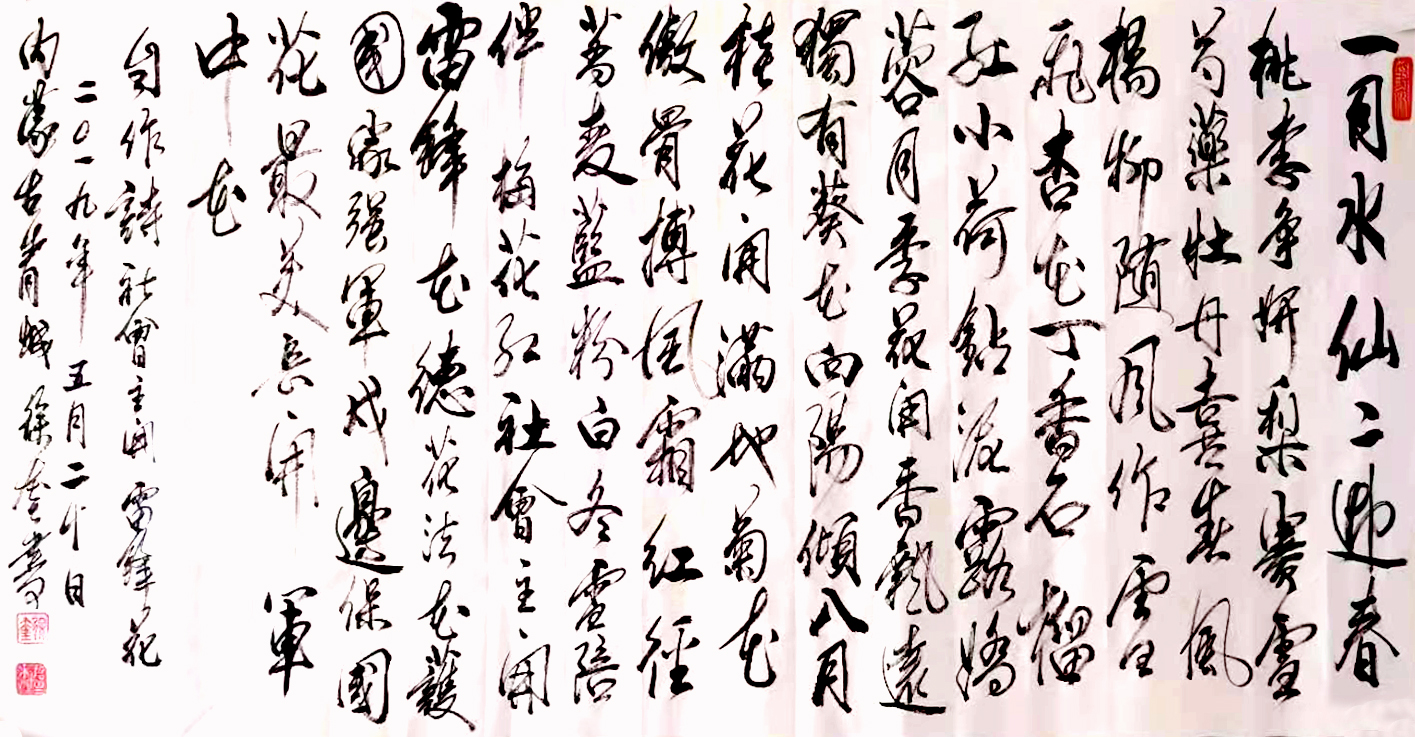 一月水仙二迎春
桃李爭妍梨賽雪
芍藥牡丹喜春風
楊柳随风作雲白
飛杏花丁香石榴
红小荷鑽泥露嬌
蓉月季花開香飄遠
獨有葵花向陽傾八月
桂花開滿地菊花
傲骨搏風霜紅徑
蕎麦藍粉白冬雪陪
伴梅花红社會主開
雷鋒花德花法花護
國家强軍戍邊保國
花最美開軍
中花
自作詩社會主開雷鋒花
二〇一九年五月二十日
内蒙古青城徐奎書